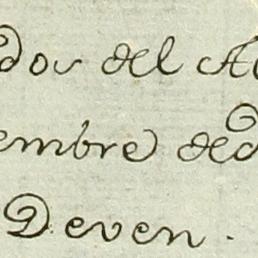 dos del A
embre de
Deven.